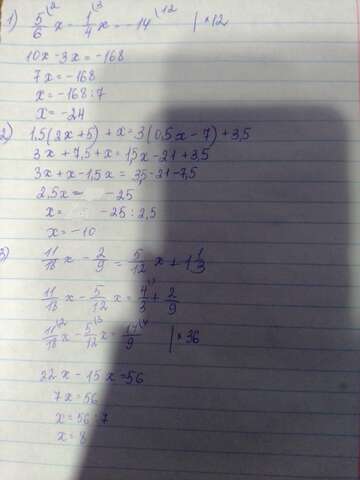 1) 5/6 x - 1/4 x = -14 | ×12
10x - 3x = -168
7x = -168
x = -168 : 7
x = -24
2) 1,5(2x+5) + x = 3(0,5x - 7) + 3,5
3x + 7,5 + x = 1,5x - 21 + 3,5
3x + x - 1,5x = 3,5 - 21 - 7,5
2,5x = -25
x = -25 : 2,5
x = -10
3) 11/18 x - 2/9 = 5/12 x + 1 1/3
11/18 x - 5/12 x = 4/3 + 2/9
11/18 x - 5/12 x = 14/9 | ×36
22x - 15x = 56
7x = 56
x = 56 : 7
x = 8